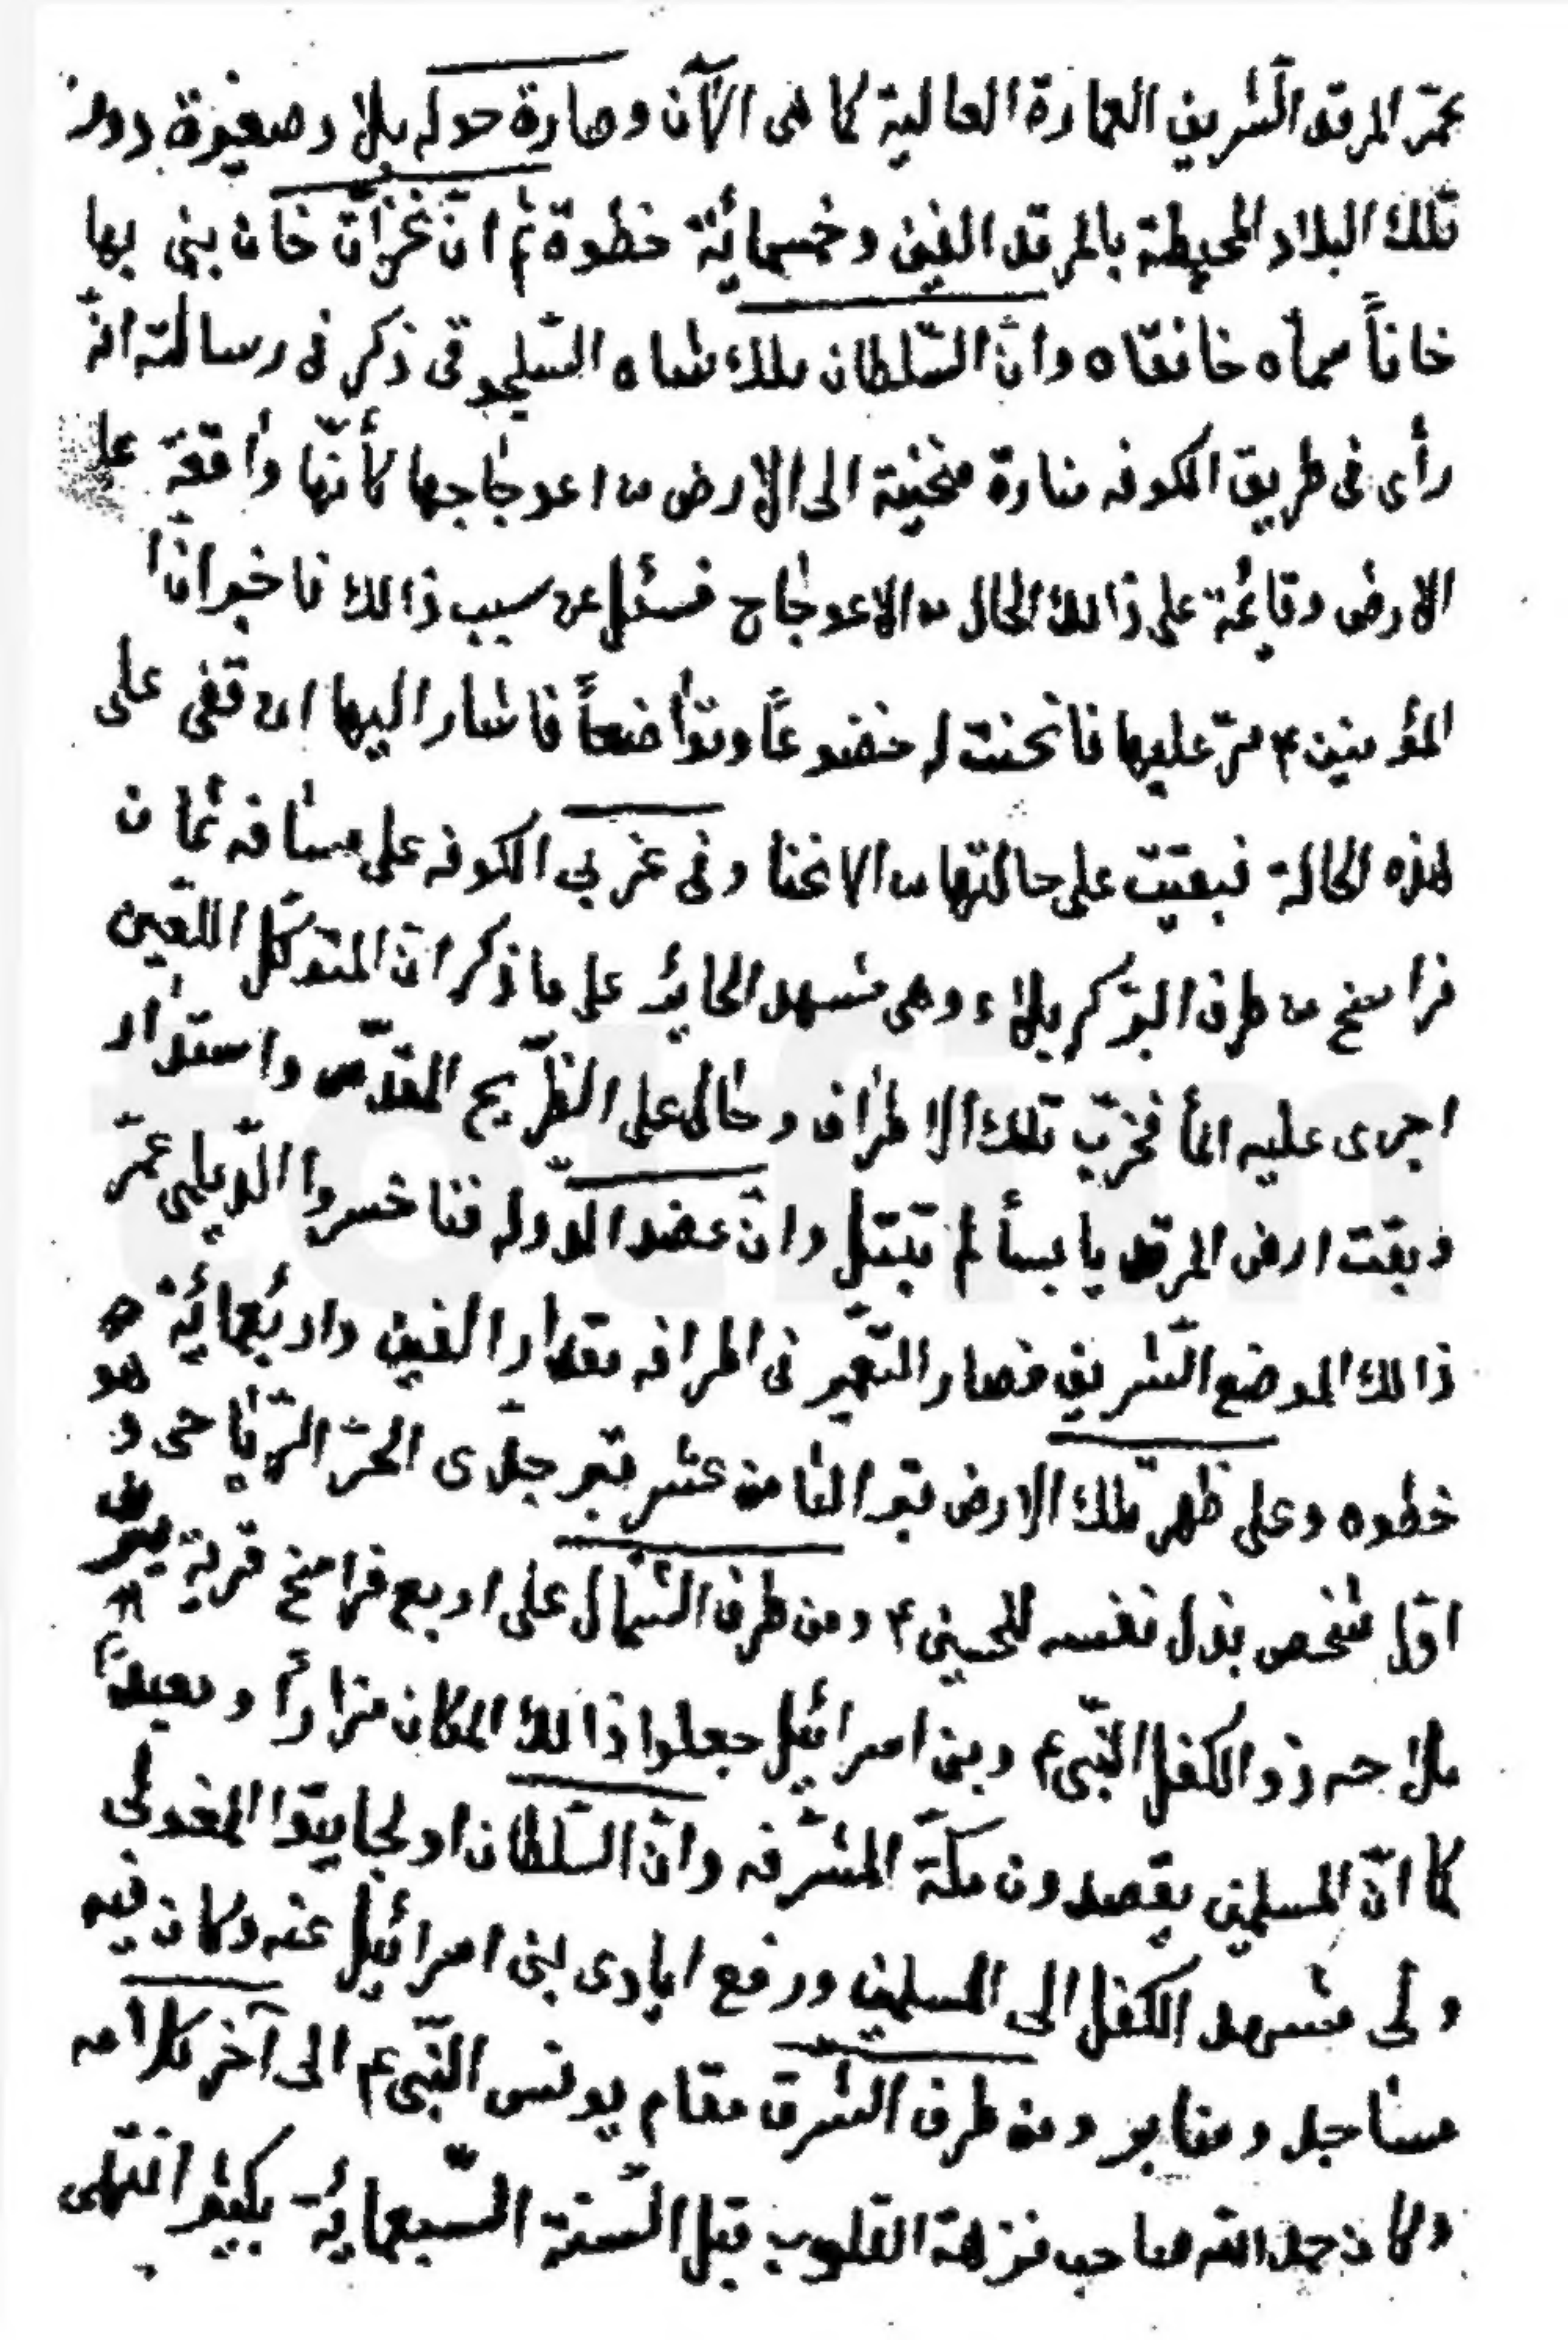 عمّر المرقد الشريف العمارة العالية كما هى الآن وصارة حوله بلاد صغيرة دور
تلك البلاد المحيطة بالمرقد الفين وخمسمائة خطوة ثم انّ غزان خان بنى بها
خاناً سماه خانقاه وانّ السّلطان ملك شاه السّلجوقى ذكر فى رسالته انّه
رأى فى طريق الكوفه منارة منحنية الى الارض من اعوجاجها كأنّها واقعة على
الارض وقائمة على ذالك الحال من الاعوجاج فسئل عن سبب ذالك فاخبر انّ ا
المؤمنين ع مرّ عليها فانحنت له خضوعاً وتواضعاً فاشار اليها ان قفى على
هذه الحالة فبقيت على حالتها من الانحنا وفى غربي الكوفه على مسافه ثمان
فراسخ من طرف البرّ كربلاء وهى مشهد الحائر على ما ذكر انّ المتوكّل اللعين
اجرى عليه المأ فخرّب تلك الاطراف وحال على الضّريح المقدّس واستدار
وبقت ارض المرقد يابسأ لم تبتل وانّ عضد الدوله فناخسروا الدّيلمى عمّر
ذالك الموضع الشّريف فصار التعمير فى اطرافه مقدار الفين واربعمائة
خطوه وعلى ظهر تلك الارض بقر الثامن عشر قبر جدّى الحرّ الرّياحى و هو
اوّل شخص بذل نفسه للحسين ع ومن طرف الشّمال على اربع فراسخ قرية يعرف
ملاحه ذو الكفل النّبى ع وبنى اسرائيل جعلوا ذالك المكان مزاراً ومعبداً
كما انّ المسلمين يقصدون مكّة المشرّفه وانّ السّلطان اولجايتوا المغولى
ولى مشهد الكفل الى المسلمين ورفع ايادى بنى اسرائيل عنه وكان فيه
مساجد ومنابر ومن طرف الشرق مقام يونس النّبى ع الى آخر كلامه
وكان حمد الله صاحب نزهة القلوب قبل السّنة السّبعمائة بكثير انتهى